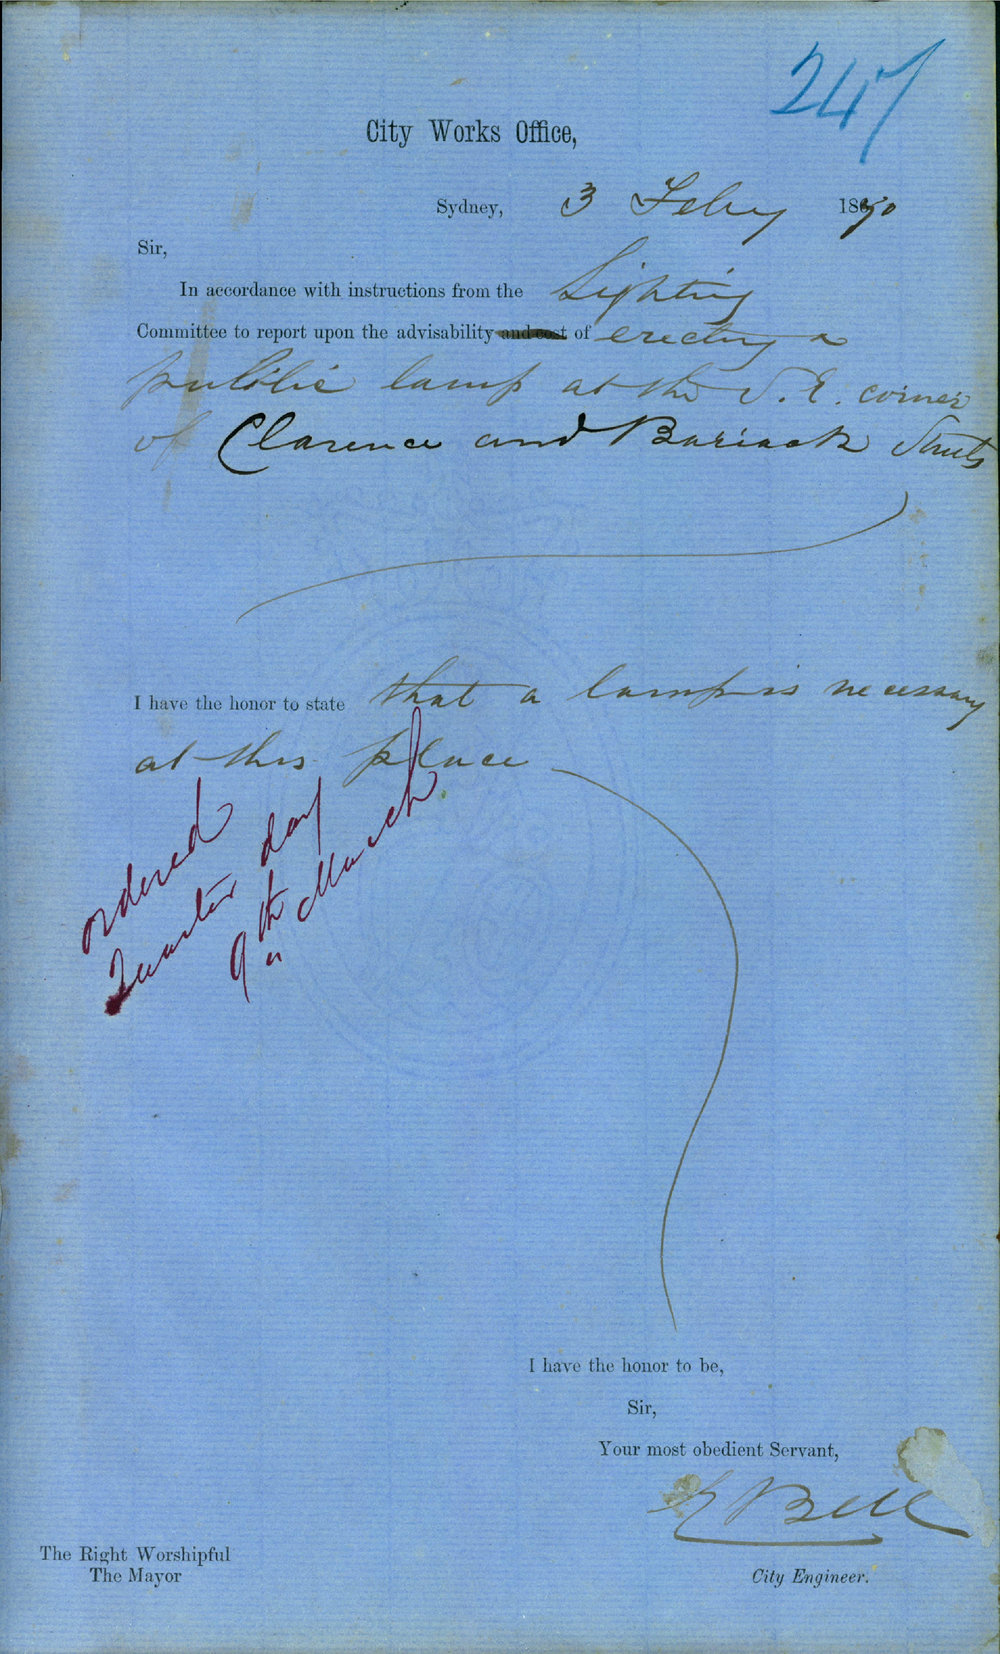 247
City Works Office,
Sydney, 3 Feby 1870
Sir,
In accordance with instructions from the Lighting
Committee to report upon the advisability and cost of erecting a
public lamp at the S. E. corner
of Clarence and Barrack Streets
I have the honor to state that a lamp is necessary
at this place
ordered
Quarter day
9th March
I have the honor to be,
Sir,
Your most obedient Servant,
E Bell
The Right Worshipful
The Mayor
City Engineer.